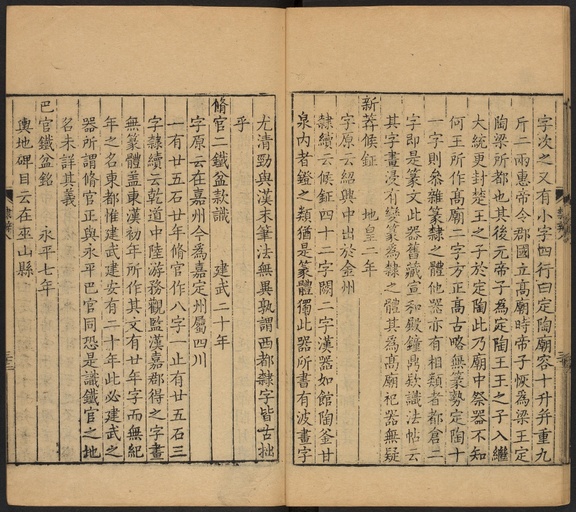 字次之又有小字四行曰定陶廟容十升并重九
斤二兩惠帝令郡國立高廟時帝子恢為梁王定
陶梁所都也其後元帝子為定陶王王之子入繼
大統更封楚王之子於定陶此乃廟中祭器不知
何王所作高廟二字方正高古略無篆勢定陶十
一字則參雜篆隸之體他器亦有相類者都倉二
字即是篆文此器舊識宣和殿鐘鼎欵識法帖云
其字畫浸有變篆為隸之體其為高廟祀器無疑
新莽候鉦 地皇二年
字原云紹興中出於金州
隸續云候鉦四十二字闕二字漢器如館陶釜甘
泉內者鐙之類猶是篆體獨此器所書有波畫字
尤清勁與漢末筆法無異孰謂西都隸字皆古拙
乎
脩官二鐵盆款識 建武二十年
字原云在嘉州今為嘉定州屬四川
一有廿五石廿年脩官作八字一止有廿五石三
字隸續云乾道中陸游務觀監漢嘉郡得之字畫
無篆體蓋東漢初年所作其文有廿年字而無紀
年之名東都惟建武建安有二十年此必建武之
器所謂脩官正與永平巴官同恐是識鐵官之地
名未詳其義
巴官鐵盆銘 永平七年
輿地碑目云在巫山縣